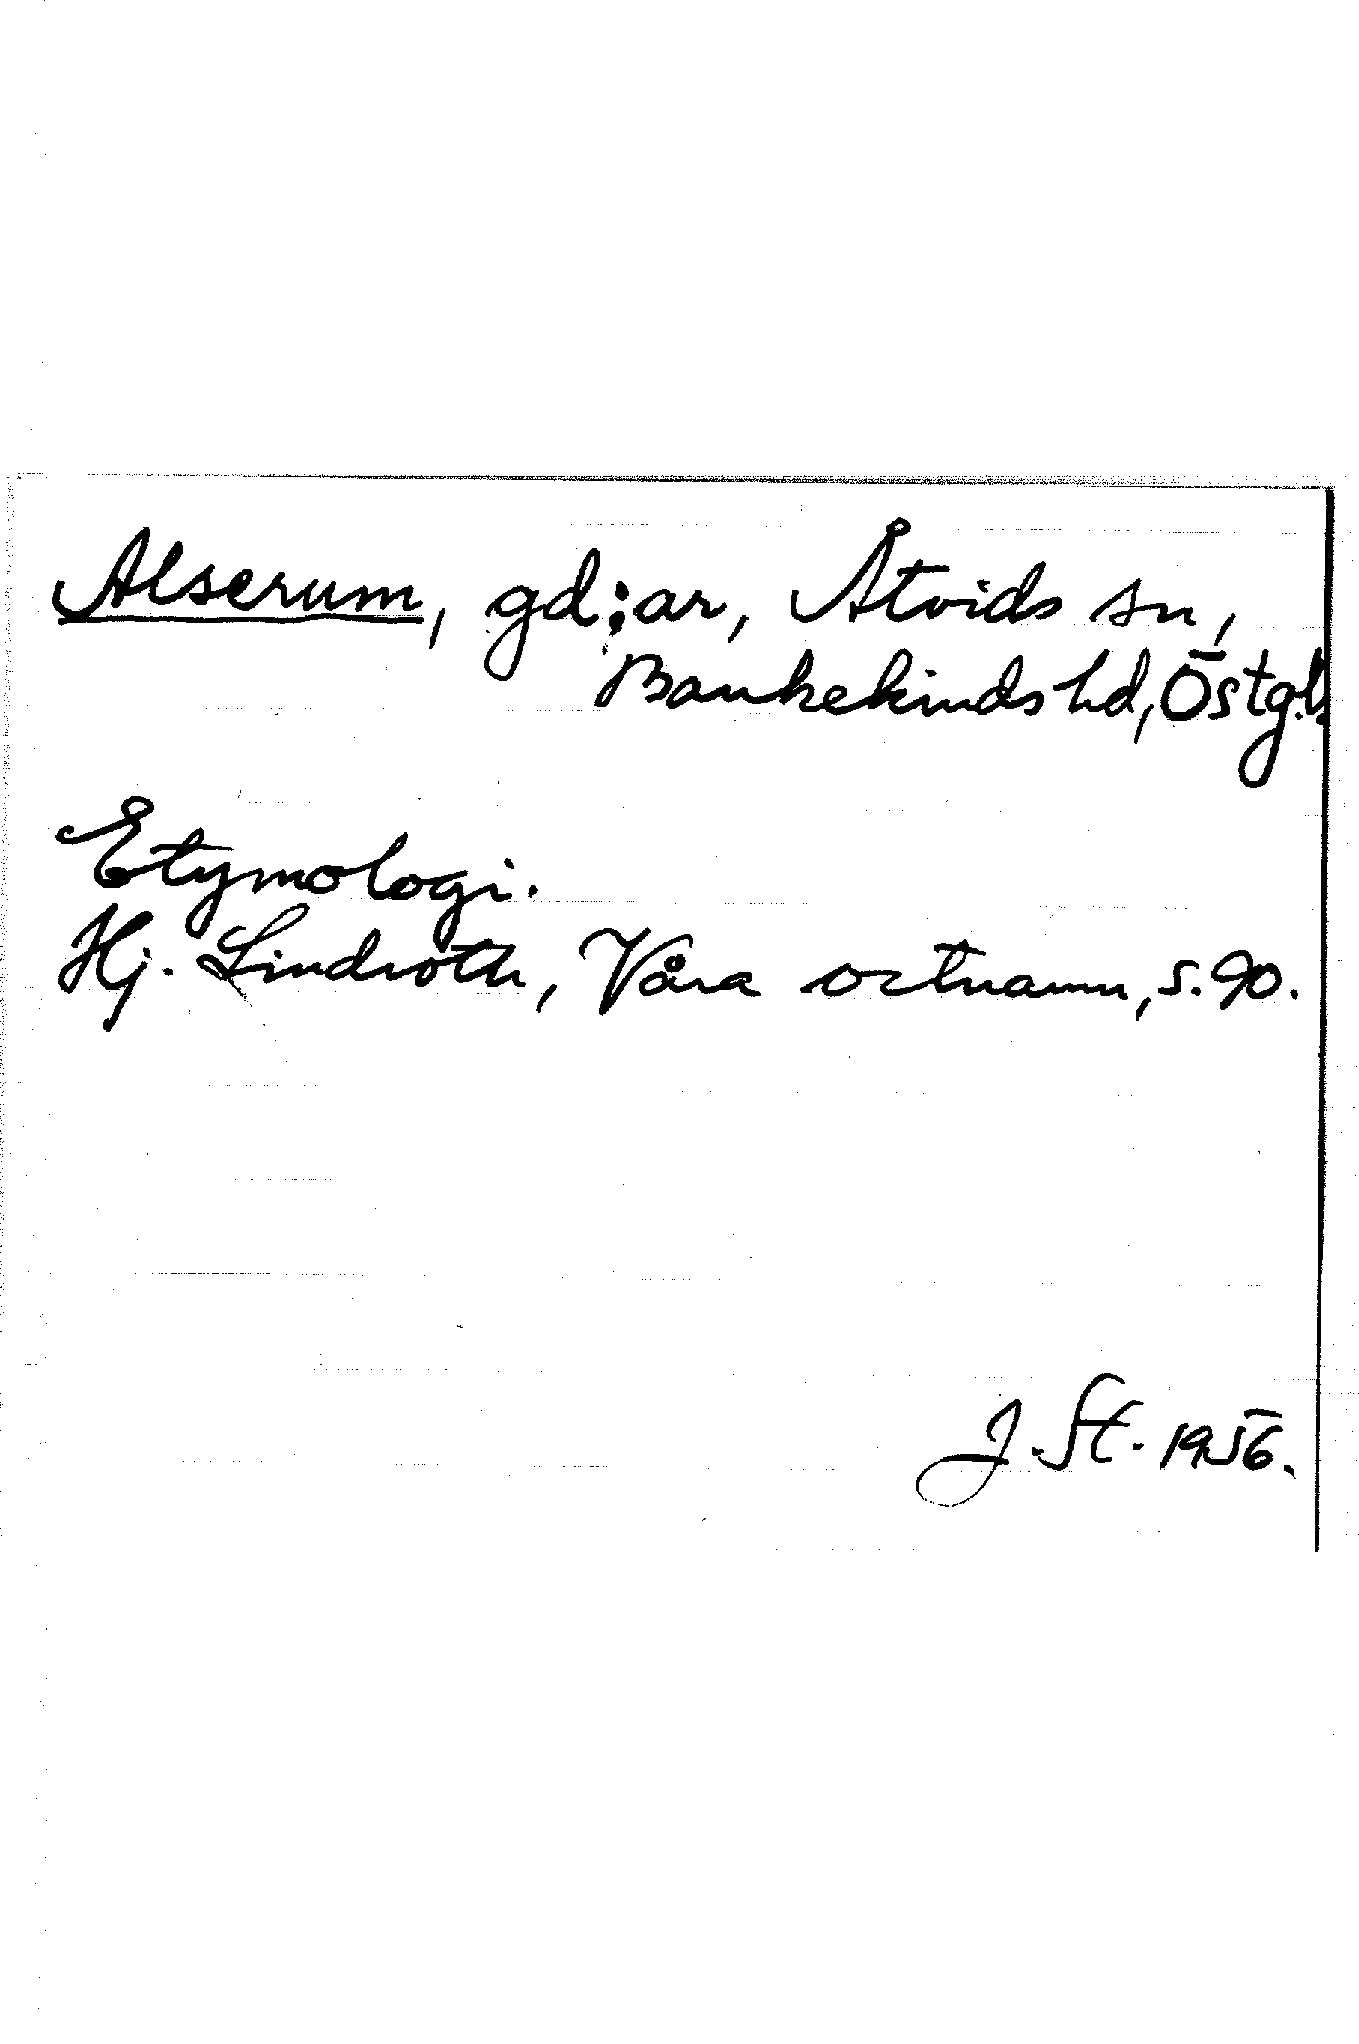 Alserum, gd;ar, Åtvids sn,
Bankekinds hd, Östg.l.
Etymologi.
Hj. Lindroth, Våra ortnamn, s. 90.
J. St. 1956.